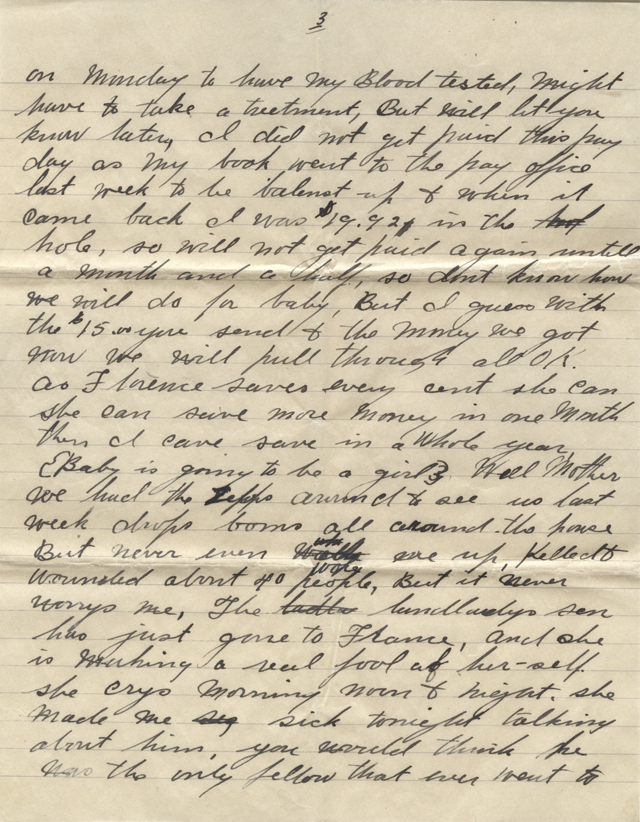 3
on Monday to have my Blood tested, might
have to take a treetment, But will let you
know later, I did not get paid this pay
day as my book went to the pay office
last week to be balenst up & when it
came back I was $19.92 in the
hole, so will not get paid again untill
a month and a half, so dont know how
we will do for baby, But I guess with
the $15.00 you send & the money we got
now we will pull through all OK.
as Florence saves every cent she can
she can save more money in one month
then I cave save in a whole year,
(Baby is going to be a girl) Well Mother
we had the Zepps around to see us last
week drops boms all around the house
But never even woke me up, Killed &
wounded about 40 people, But it never
worys me, The landladys son
has just gone to France, and she
is making a real fool of her-self.
she crys morning noon & night. she
made me sick tonight talking
about him, you would think he
was the only fellow that ever went to